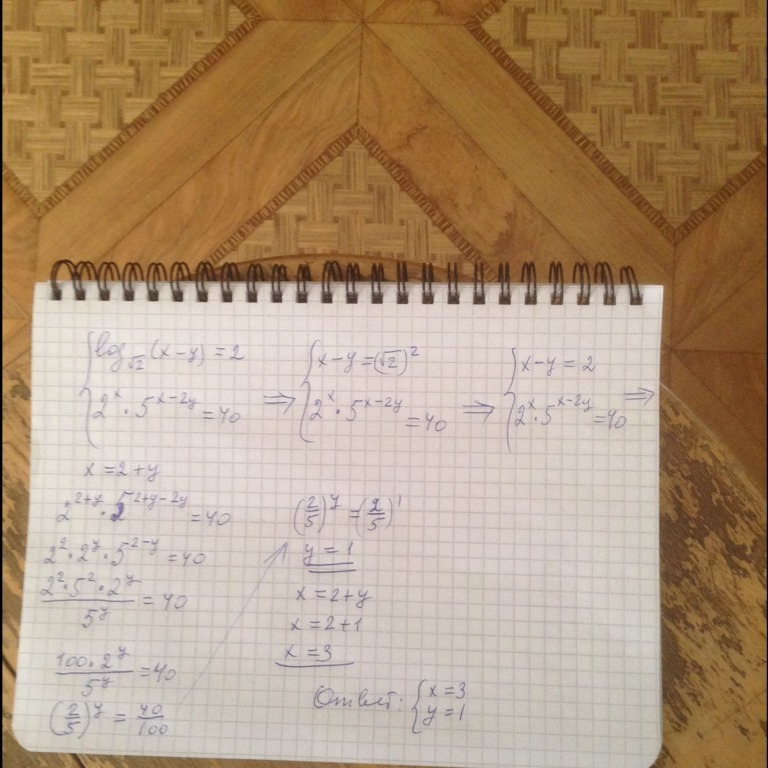 { log_√2 (x-y) = 2
2^x · 5^(x-2y) = 40 ⇒ { x-y = (√2)^2
2^x · 5^(x-2y) = 40 ⇒ { x-y = 2
2^x · 5^(x-2y) = 40 ⇒
x = 2+y
2^(2+y) · 5^(2+y-2y) = 40
2^2 · 2^y · 5^(2-y) = 40
(2^2 · 5^2 · 2^y)/5^y = 40
(100 · 2^y)/5^y = 40
(2/5)^y = 40/100
(2/5)^y = (2/5)^1
y = 1
x = 2+y
x = 2+1
x = 3
Ответ: { x = 3
y = 1